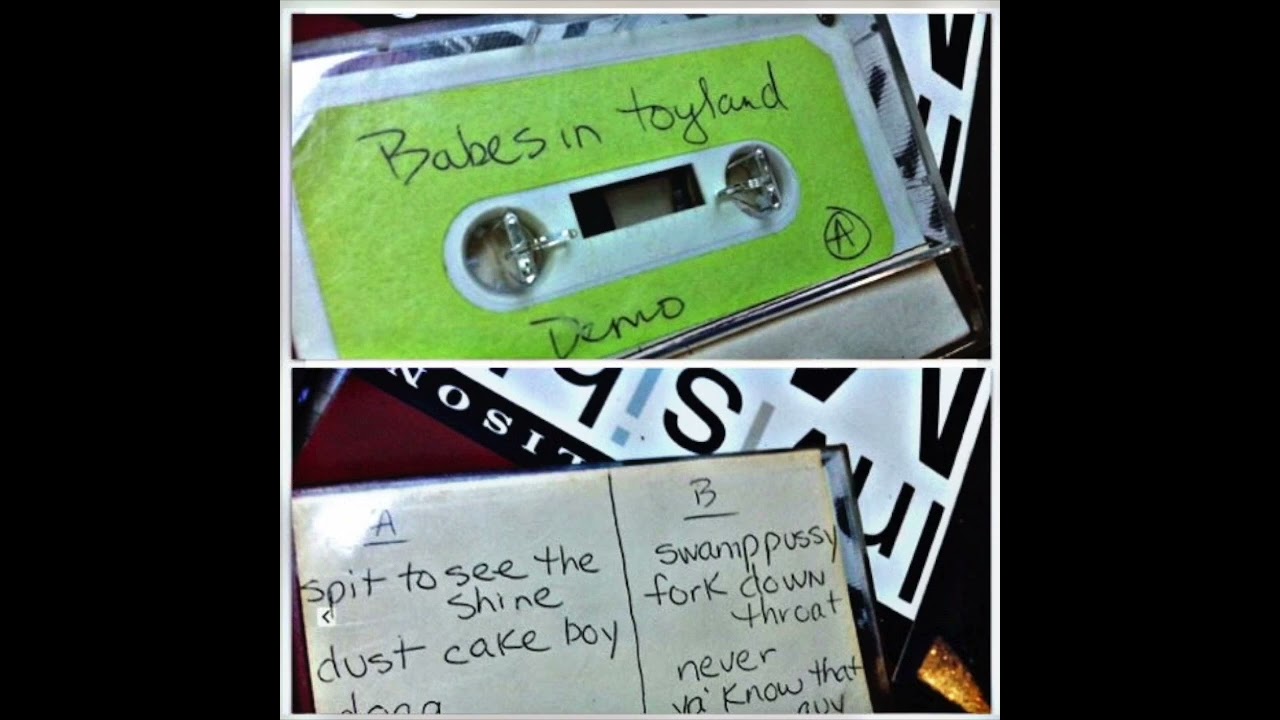 Babes in toyland
A
Demo
NOSIT
A
spit to see the
shine
dust cake boy
B
swamp pussy
fork down
throat
never
ya' know that
guy